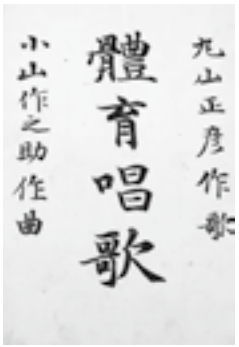 丸山正彦作歌
體育唱歌
小山作之助作曲